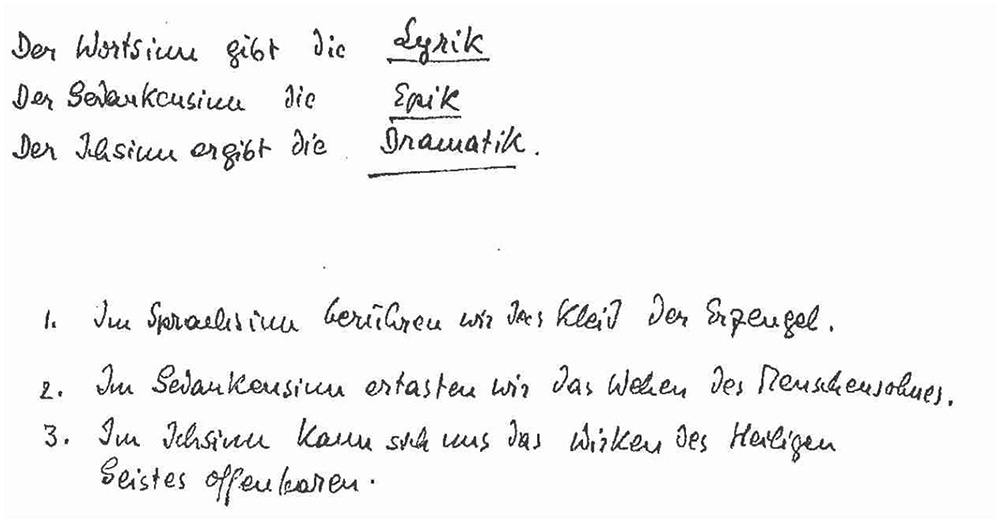 Der Wortsinn gibt die Lyrik
Der Gedankensinn die Epik
Der Ichsinn ergibt die Dramatik.
1. Im Sprachsinn berühren wir das Kleid der Erzengel.
2. Im Gedankensinn ertasten wir das Wehen des Menschensohnes.
3. Im Ichsinn kann sich uns das Wirken des Heiligen
Geistes offenbaren.